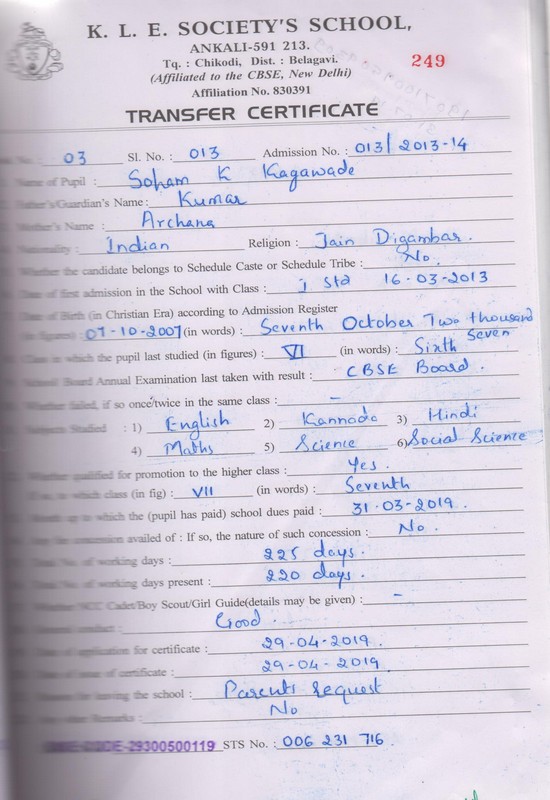 K. L. E. SOCIETY'S SCHOOL,
ANKALI-591 213.
Tq. : Chikodi, Dist. : Belagavi.
249
(Affiliated to the CBSE, New Delhi)
Affiliation No. 830391
TRANSFER CERTIFICATE
No. : 03 Sl. No. : 013 Admission No. : 013/2013-14
Name of Pupil : Soham K Kagawade
Father's/Guardian's Name : Kumar
Mother's Name : Archana
Nationality : Indian Religion : Jain Digambar.
Whether the candidate belongs to Schedule Caste or Schedule Tribe : No.
Date of first admission in the School with Class : I Std 16-03-2013
Date of Birth (in Christian Era) according to Admission Register
(in figures) : 07-10-2007 (in words) : Seventh October Two thousand Seven
Class in which the pupil last studied (in figures) : VI (in words) : Sixth
Board Annual Examination last taken with result : CBSE Board.
Whether failed, if so once/twice in the same class : -
Studied : 1) English 2) Kannada 3) Hindi
4) Maths 5) Science 6) Social Science
Whether qualified for promotion to the higher class : Yes.
If so, in which class (in fig) : VII (in words) : Seventh
up to which the (pupil has paid) school dues paid : 31-03-2019.
concession availed of : If so, the nature of such concession : No.
of working days : 225 days.
of working days present : 220 days.
NCC Cadet/Boy Scout/Girl Guide(details may be given) : -
conduct : Good.
of application for certificate : 29-04-2019.
of certificate : 29-04-2019.
Reasons for leaving the school : Parents request
Remarks : No
CODE-29300500119 STS No. : 006 231 716.